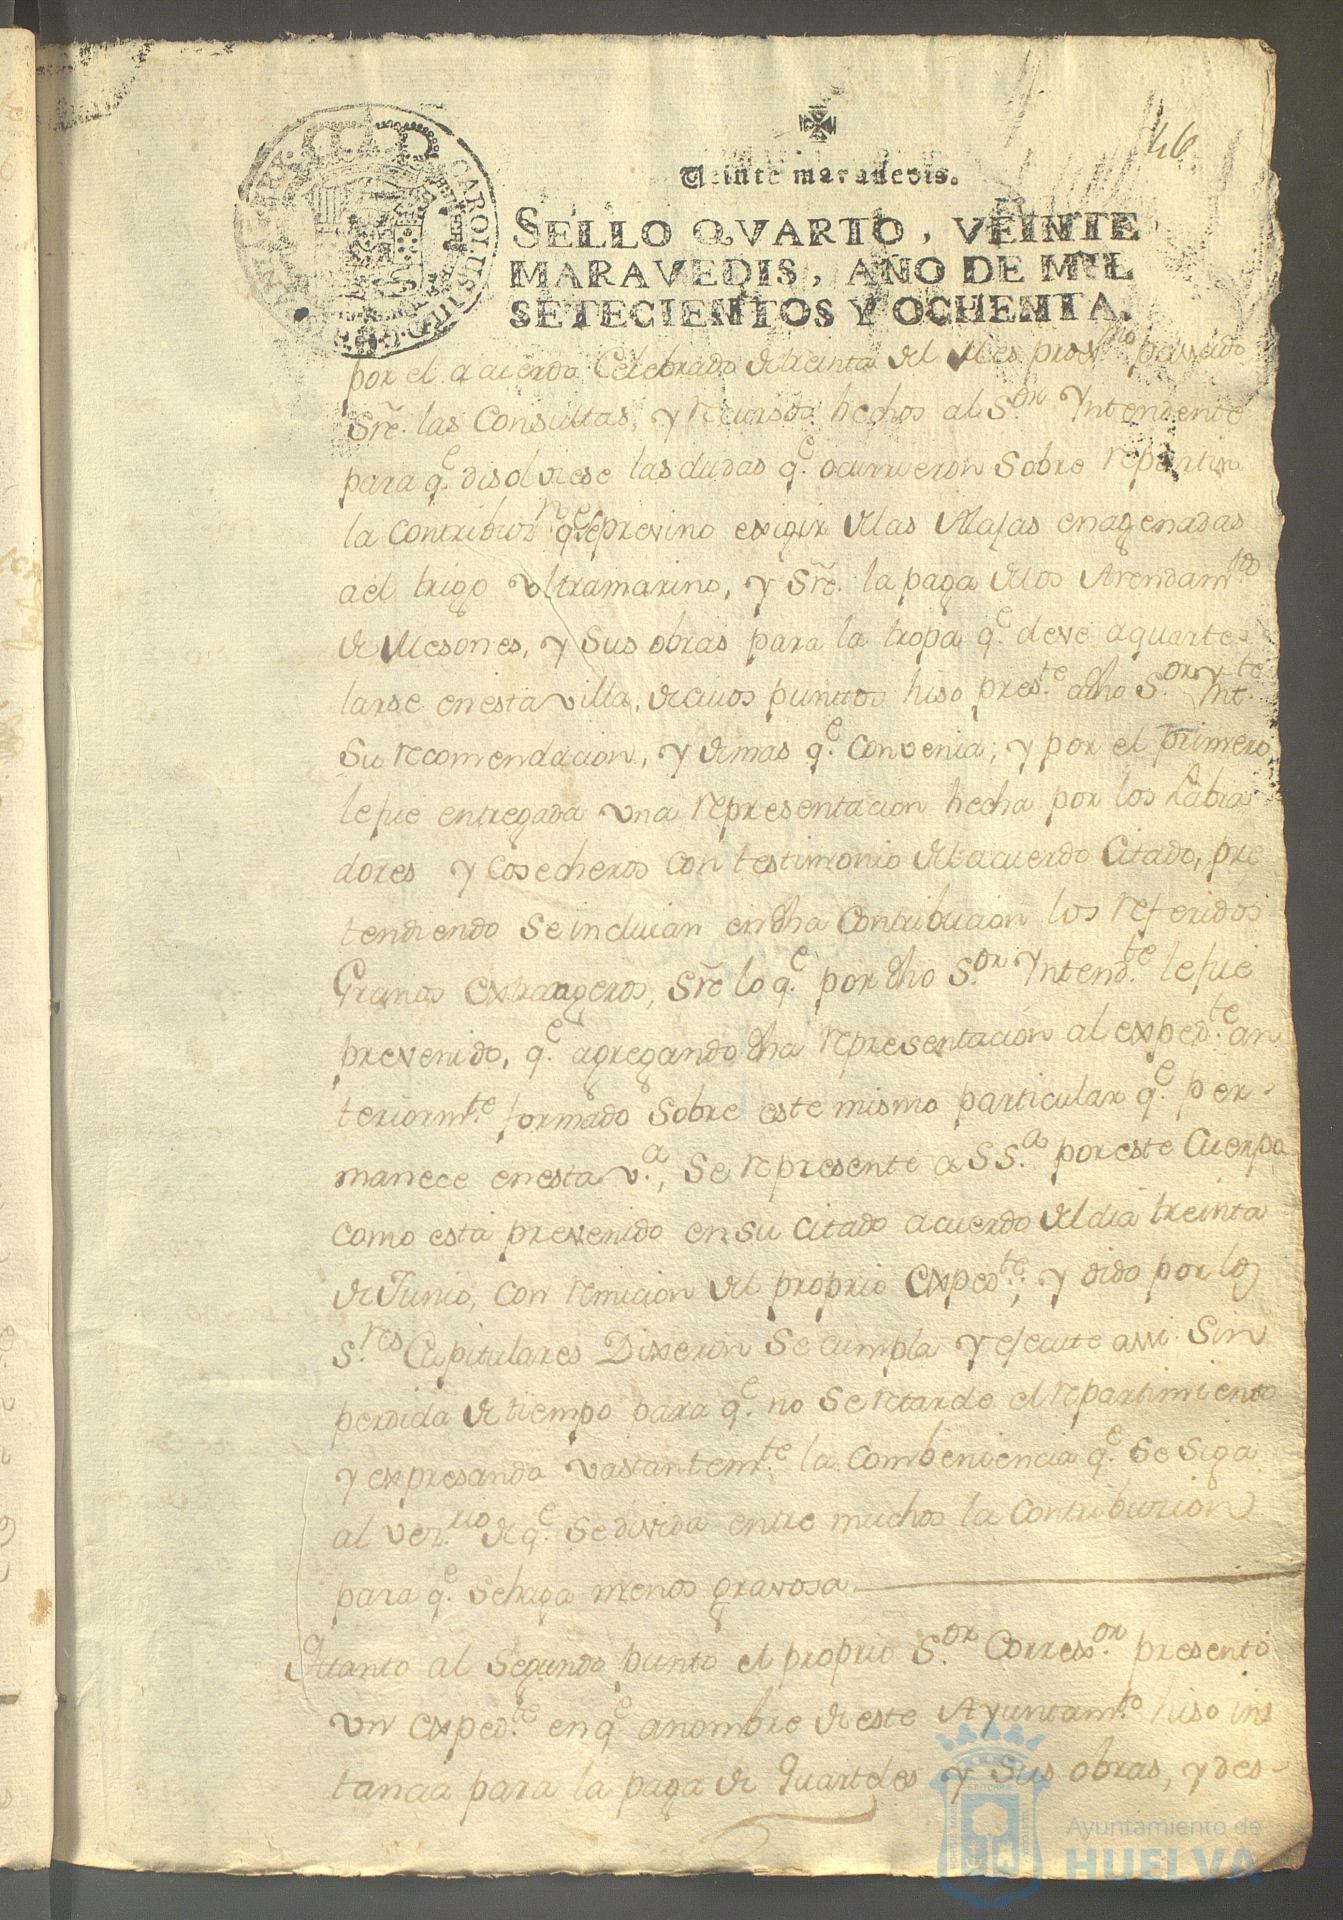 46
Veinte maravedis.
SELLO QVARTO, VEINTE
MARAVEDIS, AÑO DE MIL
SETECIENTOS Y OCHENTA.
CAROLUS III D.G.
por el acuerdo Celebrado de treinta del Mes prox.mo passado
Sre. las Consultas, y recursos hechos al S.or Yntendente
para q.e disolviese las dudas q.e ocurrieron Sobre repartir
la Contribuz.n q.e se previno exigir de las Alajas enagenadas
a el trigo Vltramarino, y Sre. la paga de los Arendam.tos
de Mesones, y Sus obras para la tropa q.e deve aquarte-
larse en esta villa, de cuios puntos hiso pres.te a dho S.or Ynt.te
Su recomendacion, y demas q.e convenia; y por el primero
le fue entregada una representacion hecha por los Labra
dores y Cosecheros con testimonio del acuerdo Citado, pre
tendiendo Se incluian en dha Contribucion los referidos
Granos extrangeros, Sre lo q.e por dho S.or Yntend.te le fue
prevenido, q.e agregando dha representación al exped.te an
teriorm.te formado Sobre este mismo particular q.e per-
manece en esta v.a, Se represente a S S.a por este Cuerpo
como está prevenido en su citado acuerdo del dia treinta
de Junio, con remicion del proprio Exped.te; y oido por los
S.res Capitulares Dixeron Se cumpla y execute assi Sin
perdida de tiempo para q.e no Se retarde el repartimiento
y expresando vastantem.te la Combeniencia q.e Se Siga
al de q.e Se divida entre muchos la Contribucion
para q.e Se haga menos gravosa.
Quanto al Segundo punto el proprio S.or Corres.or presentó
un exped.te en q.e a nombre de este Ayuntam.to hiso ins
tancia para la paga de Quarteles y Sus obras, y des-
Ayuntamiento de
HUELVA